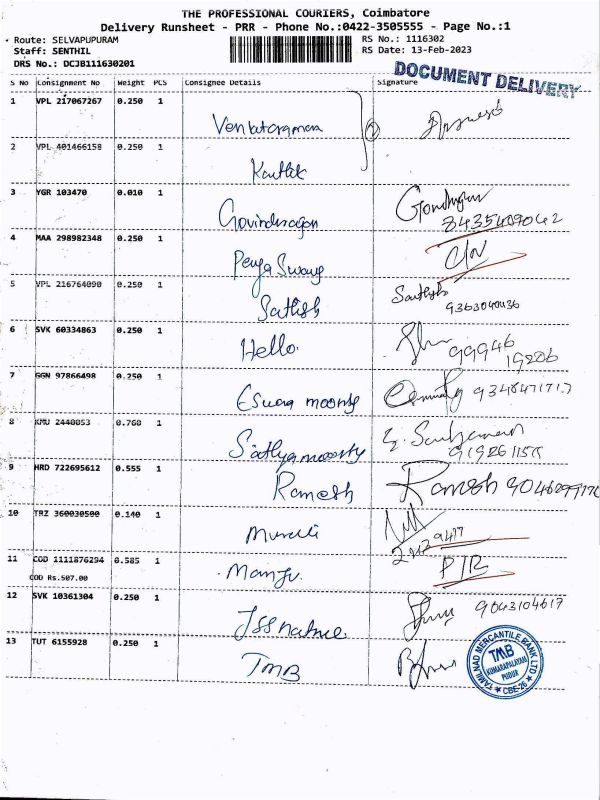 THE PROFESSIONAL COURIERS, Coimbatore
Delivery Runsheet - PRR - Phone No.:0422-3505555 - Page No.:1
Route: SELVAPUPURAM
RS No.: 1116302
Staff: SENTHIL
RS Date: 13-Feb-2023
DRS No.: DCJB111630201
DOCUMENT DELIVERY
S No Consignment No Weight PCS Consignee Details Signature
1 VPL 217067267 0.250 1
Venkatraman
2 VPL 401466158 0.250 1
Karthik
3 YGR 103470 0.010 1
Govindragan
8435409042
4 MAA 298982348 0.250 1
Periya Swamy
5 VPL 216764090 0.250 1
Sathish Sathish
9363040436
6 SVK 60334863 0.250 1
Hello. 99946
19206
7 GGN 97866498 0.250 1
Eswara moorthy
8 KMU 2440053 0.760 1
Sathyamoorthy
9 HRD 722695612 0.555 1
Ramesh Ramesh
10 TRZ 360030500 0.140 1
Murali
11 COD 1111876294 0.585 1
COD Rs.507.00
Manju.
12 SVK 10361304 0.250 1
9043104617
13 TUT 6155928 0.250 1
TMB
TAMILNAD MERCANTILE BANK LTD
TMB
KUMARAPALAYAM
PUDUR
CBE-26